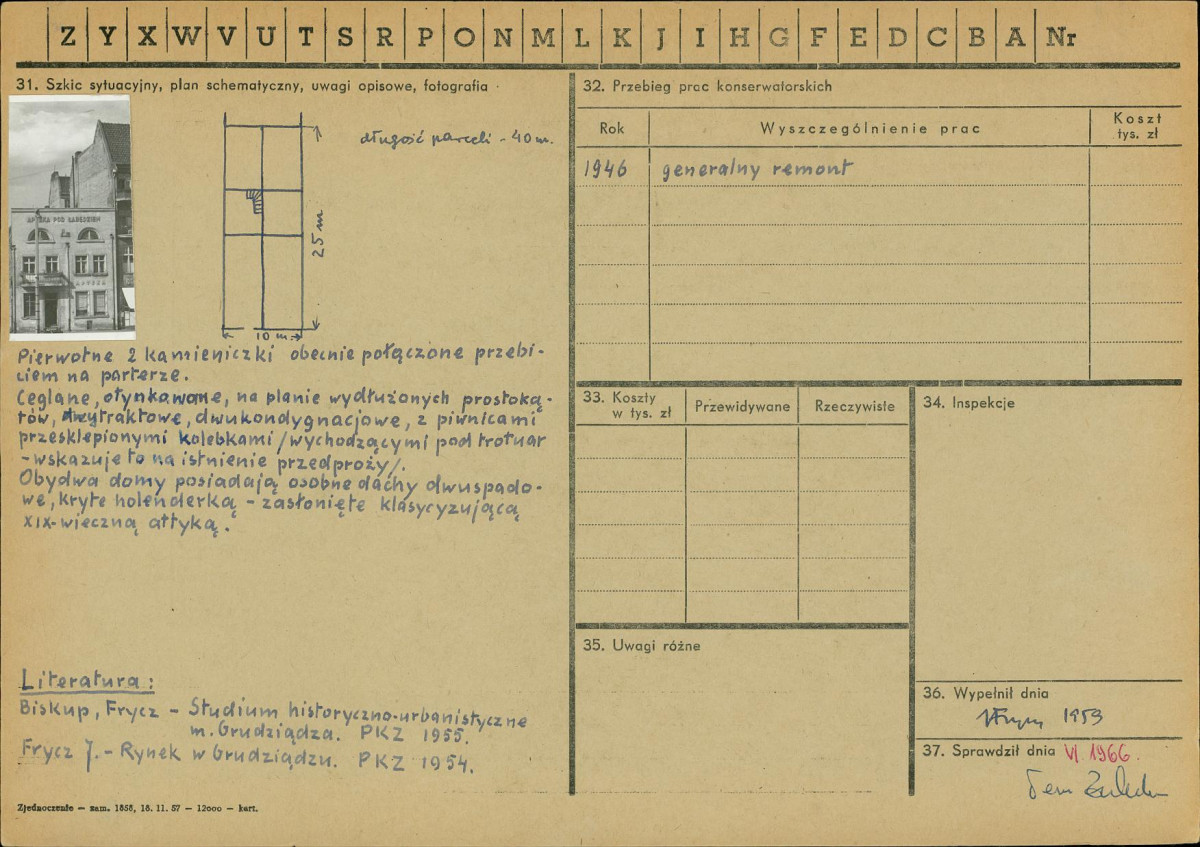 Z Y X W V U T S R P O N M L K J I H G F E D C B A Nr
31. Szkic sytuacyjny, plan schematyczny, uwagi opisowe, fotografia
długość parceli - 40 m.
25 m
10 m.
APTEKA POD ŁABĘDZIEM
APTEKA
Pierwotne 2 kamieniczki obecnie połączone przebi-
ciem na parterze.
Ceglane, otynkowane, na planie wydłużonych prostoką-
tów, trzytraktowe, dwukondygnacjowe, z piwnicami
przesklepionymi kolebkami /wychodzącymi pod trotuar
- wskazuje to na istnienie przedproży/.
Obydwa domy posiadają osobne dachy dwuspado-
we, kryte holenderką - zasłonięte klasycyzującą
XIX-wieczną attyką.
Literatura:
Biskup, Frycz - Studium historyczno-urbanistyczne
m. Grudziądza. PKZ 1955.
Frycz J. - Rynek w Grudziądzu. PKZ 1954.
Zjednoczenie — zam. 1858, 18. 11. 57 — 12000 — kart.
32. Przebieg prac konserwatorskich
Rok Wyszczególnienie prac Koszt tys. zł
1946 generalny remont
33. Koszty w tys. zł Przewidywane Rzeczywiste
34. Inspekcje
35. Uwagi różne
36. Wypełnił dnia
1959
37. Sprawdził dnia VI. 1966.